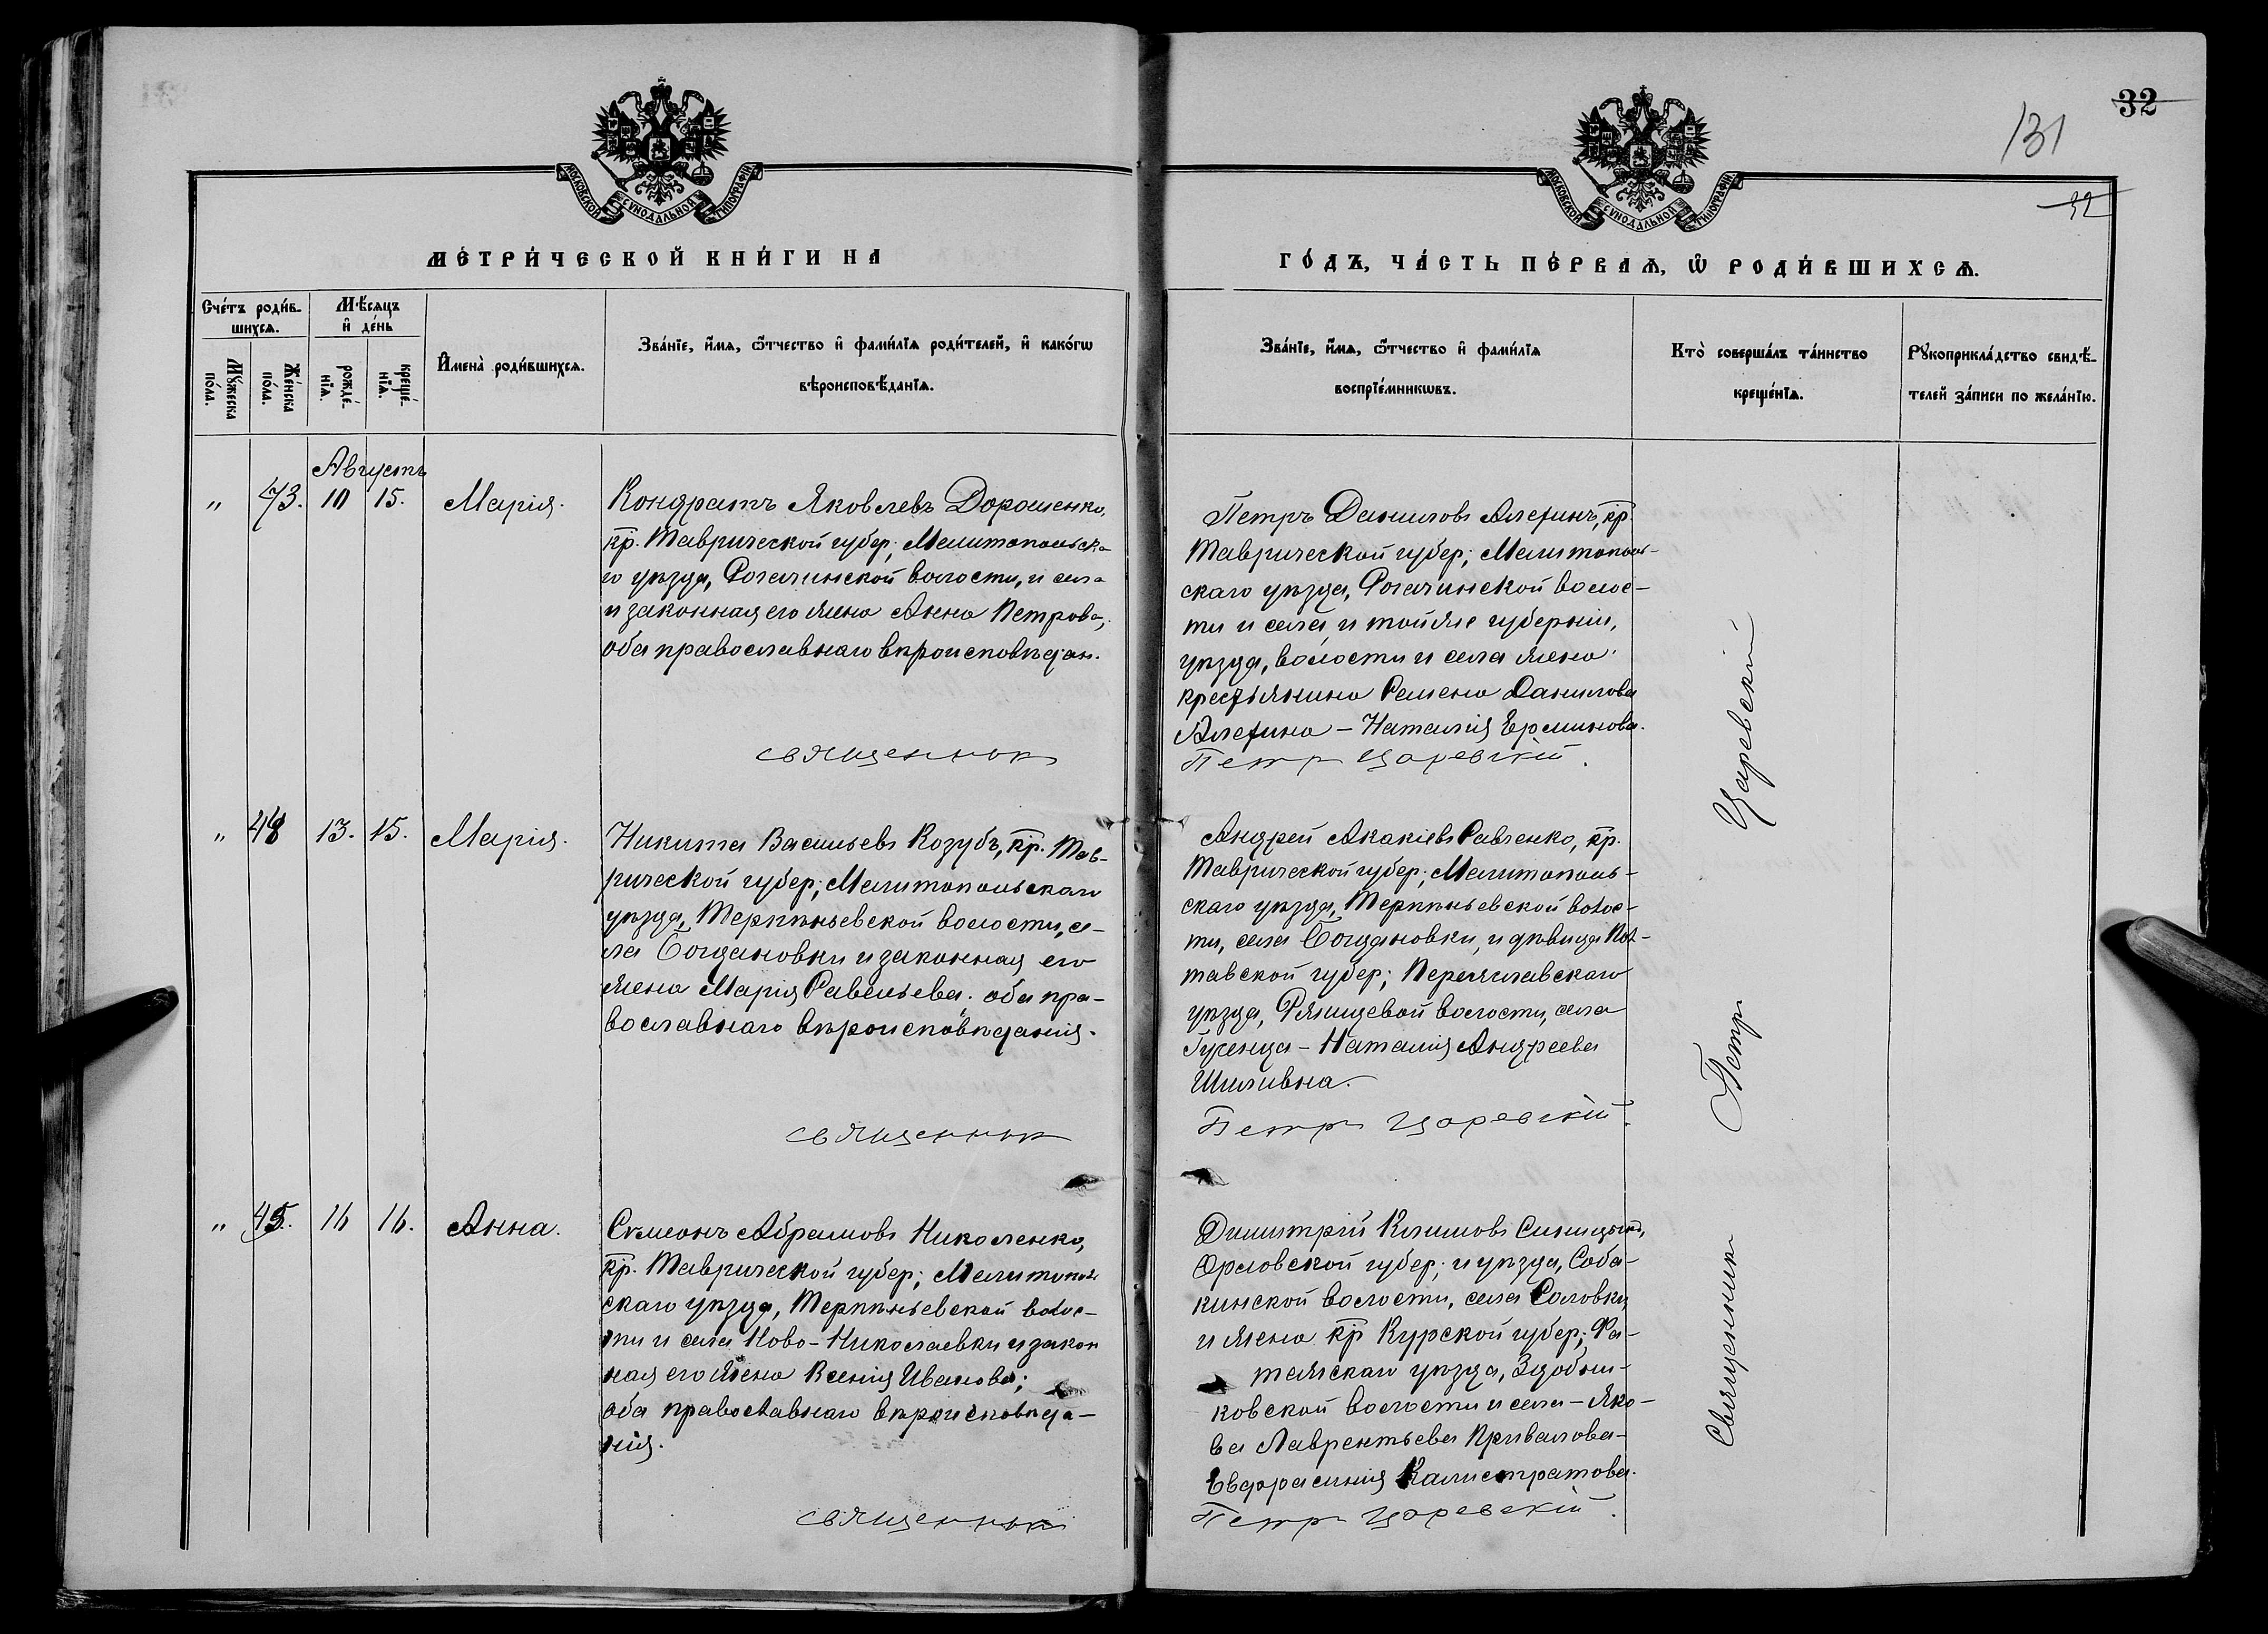 32
131
32
МОСКОВСКОЙ СУНОДАЛЬНОЙ ТИПОГРАФІИ
МОСКОВСКОЙ СУНОДАЛЬНОЙ ТИПОГРАФІИ
МЕ́ТРИ́ЧЕСКОЙ КНИ́ГИ НА
ГО́ДЪ, ЧА́СТЬ ПЕ́РВАѦ, Ѽ РОДИ́ВШИХСѦ.
Сче́тъ роди́в-
шихсѧ.
Мꙋжеска по́ла.
Же́нска по́ла.
Мѣ́сяцъ
и҆ де́нь
рожде́-
нїѧ.
креще́-
нїѧ.
И҆мена̀ роди́вшихсѧ.
Зва́нїе, и҆́мѧ, ѻ҆́тчество и҆ фами́лїѧ роди́телей, и҆ како́гѡ
вѣроисповѣ́данїѧ.
Зва́нїе, и҆́мѧ, ѻ҆́тчество и҆ фами́лїѧ
воспрїе́мникѡвъ.
Кто̀ соверша́лъ та́инство
креще́нїѧ.
Рꙋкоприкла́дство свидѣ́-
телей за́писи по жела́нїю.
Августъ
" 43. 10 15. Марія.
Кондратъ Яковлевъ Дорошенко,
кр. Таврической губер; Мелитопольска-
го уѣзда, Рогачинской волости, и села
и законная его жена Анна Петрова,
оба православнаго вѣроисповѣдан.
священникъ
Петръ Даниловъ Алехинъ, кр.
Таврической губер; Мелитополь-
скаго уѣзда, Рогачинской волос-
ти и села и той же губерніи,
уѣзда, волости и села жена
крестьянина Семена Данилова
Алехина – Наталія Ерминова.
Петръ Царевскій.
" 44 13. 15. Марія.
Никита Васильевъ Козубъ, кр. Тав-
рической губер; Мелитопольскаго
уѣзда, Терпѣньевской волости, се-
ла Богдановки и законная его
жена Марія Савельева. оба пра-
вославнаго вѣроисповѣданія.
священникъ
Андрей Акакіевъ Савченко, кр.
Таврической губер; Мелитополь-
скаго уѣзда, Терпѣньевской волос-
ти, села Богдановки, и дѣвица Пол-
тавской губер; Переяславскаго
уѣзда, волости, села
Наталія Андреева
Шиливна.
Петръ Царевскій.
" 45. 16 16. Анна.
Симеонъ Абрамовъ Николенко,
кр. Таврической губер; Мелитополь
скаго уѣзда, Терпѣньевской волос-
ти и села Ново-Николаевки и закон
ная его жена Ксенія Иванова;
оба православнаго вѣроисповѣда-
нія.
священникъ
Димитрій Климовъ Синицынъ,
Орловской губер; и уѣзда, Соба-
кинской волости, села Саловки
и жена кр Курской губер; Фа-
тежскаго уѣзда,
ковской волости и села – Яко-
ва Лаврентьева Привалова –
Евфрасинія Калистратова.
Петръ Царевскій.
Священникъ Петръ Царевскій